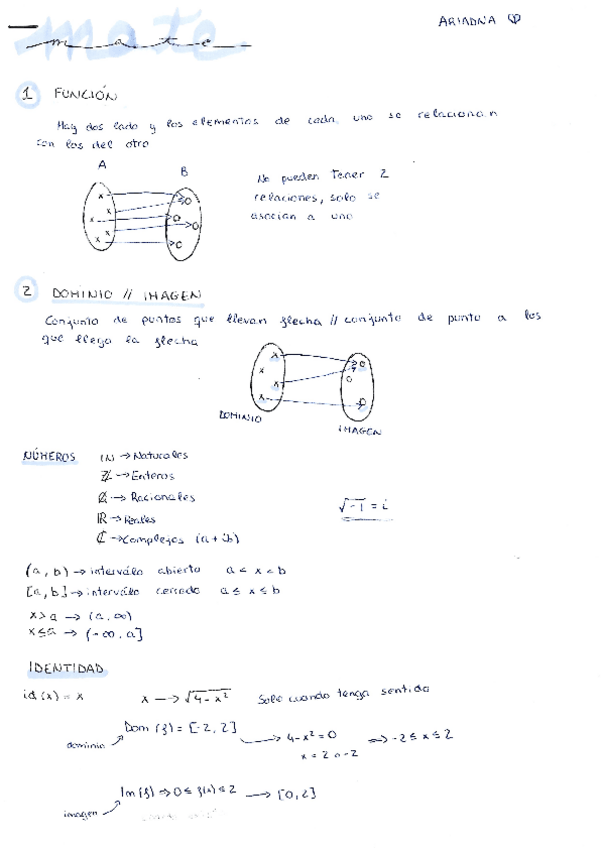 mate
ARIADNA
mate
1 FUNCIÓN
Hay dos lado y los elementos de cada uno se relacionan
con los del otro
A B
No pueden tener 2
relaciones, solo se
asocian a uno
2 DOMINIO // IMAGEN
Conjunto de puntos que llevan flecha // conjunto de punto a los
que llega la flecha
DOMINIO
IMAGEN
NÚMEROS ℕ → Naturales
ℤ → Enteros
ℚ → Racionales
√-1 = i
ℝ → Reales
ℂ → Complejos (a + ib)
(a, b) → intervalo abierto a < x < b
[a, b] → intervalo cerrado a ≤ x ≤ b
x > a → (a, ∞)
x ≤ a → (-∞, a]
IDENTIDAD
id (x) = x x → √4-x² Solo cuando tenga sentido
Dom (f) = [-2, 2]
dominio
4-x² = 0 ⇒ -2 ≤ x ≤ 2
x = 2 o -2
Im (f) ⇒ 0 ≤ f(x) ≤ 2 → [0, 2]
imagen